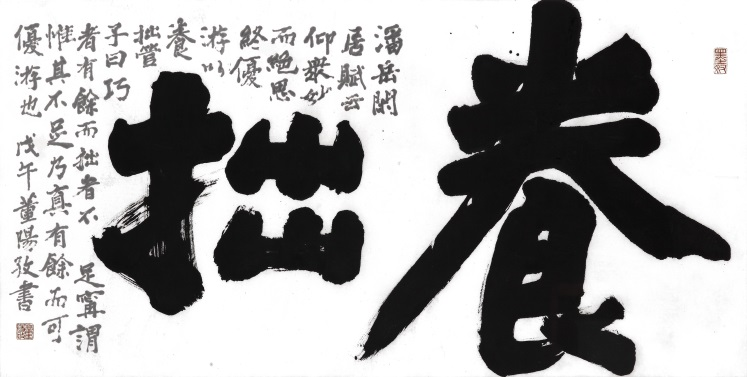 養拙
潘岳閑
居賦云
仰眾妙
而絕思
終優
游以
養
拙管
子曰巧
者有餘而拙者不足寧謂
惟其不足乃真有餘而可
優游也 戊午董陽孜書